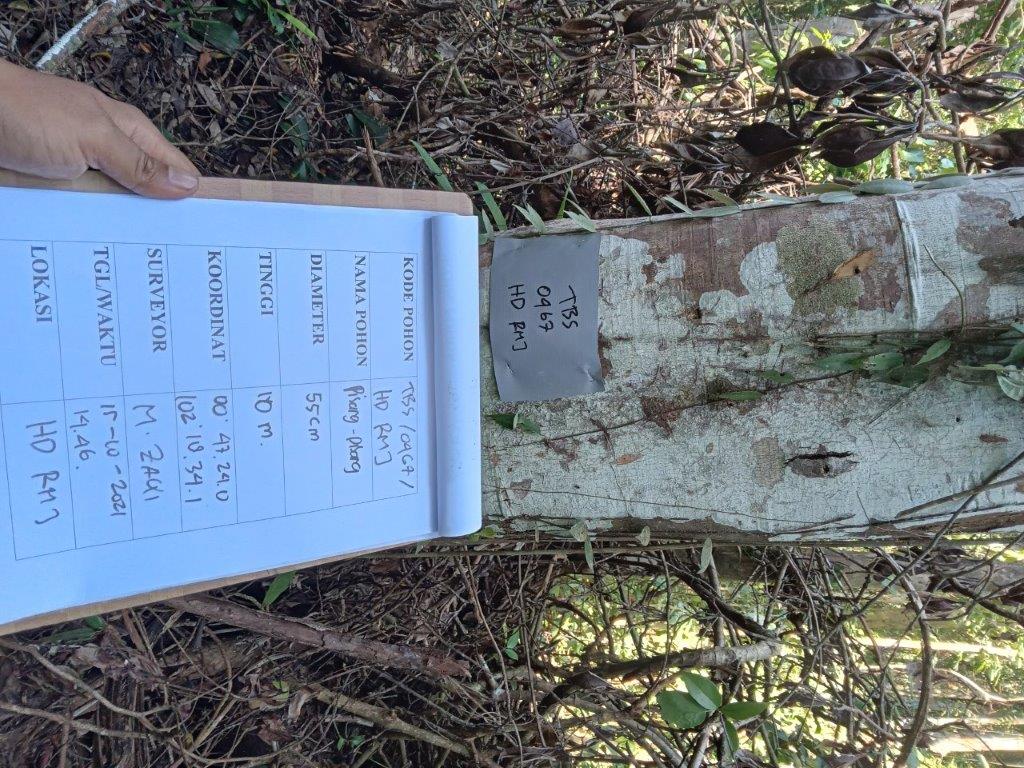 TBS
0467
HD RMJ
KODE POHON TBS /0467/
HD RMJ
NAMA POHON Pisang-Pisang
DIAMETER 55cm
TINGGI 10 m.
KOORDINAT 00° 47.24.0
102° 18.34.1
SURVEYOR M. ZAQI
TGL/WAKTU 15-10-2021
14.46.
LOKASI HD RMJ